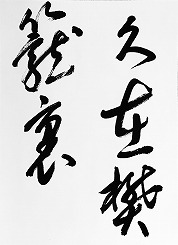 久在樊
籠裏